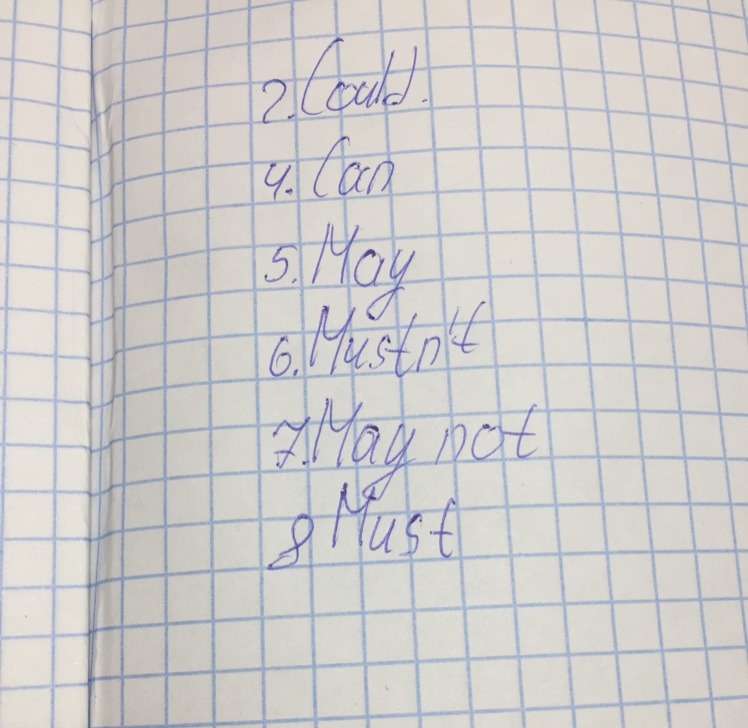 2. Could.
4. Can
5. May
6. Mustn't
7. May not
8 Must